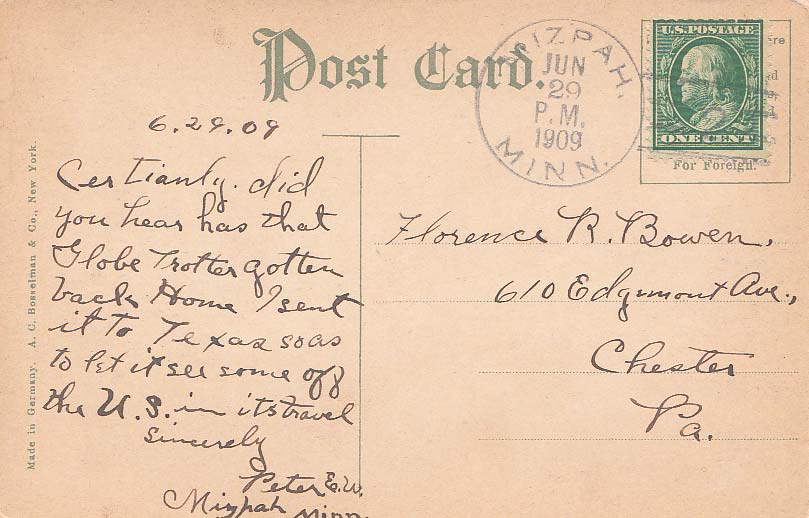 Post Card.
MIZPAH.
JUN
29
P.M.
1909
MINN.
U.S. POSTAGE
ONE CENT
For Foreign.
Made in Germany. A. C. Bosselman & Co., New York.
6.29.09
Certianly. did
you hear has that
Globe Trotter gotten
back Home I sent
it to Texas soas
to let it see some off
the U.S. in its travel
Sincerely
Peter E.W.
Mizpah Minn.
Florence R. Bowen,
610 Edgemont Ave.,
Chester
Pa.